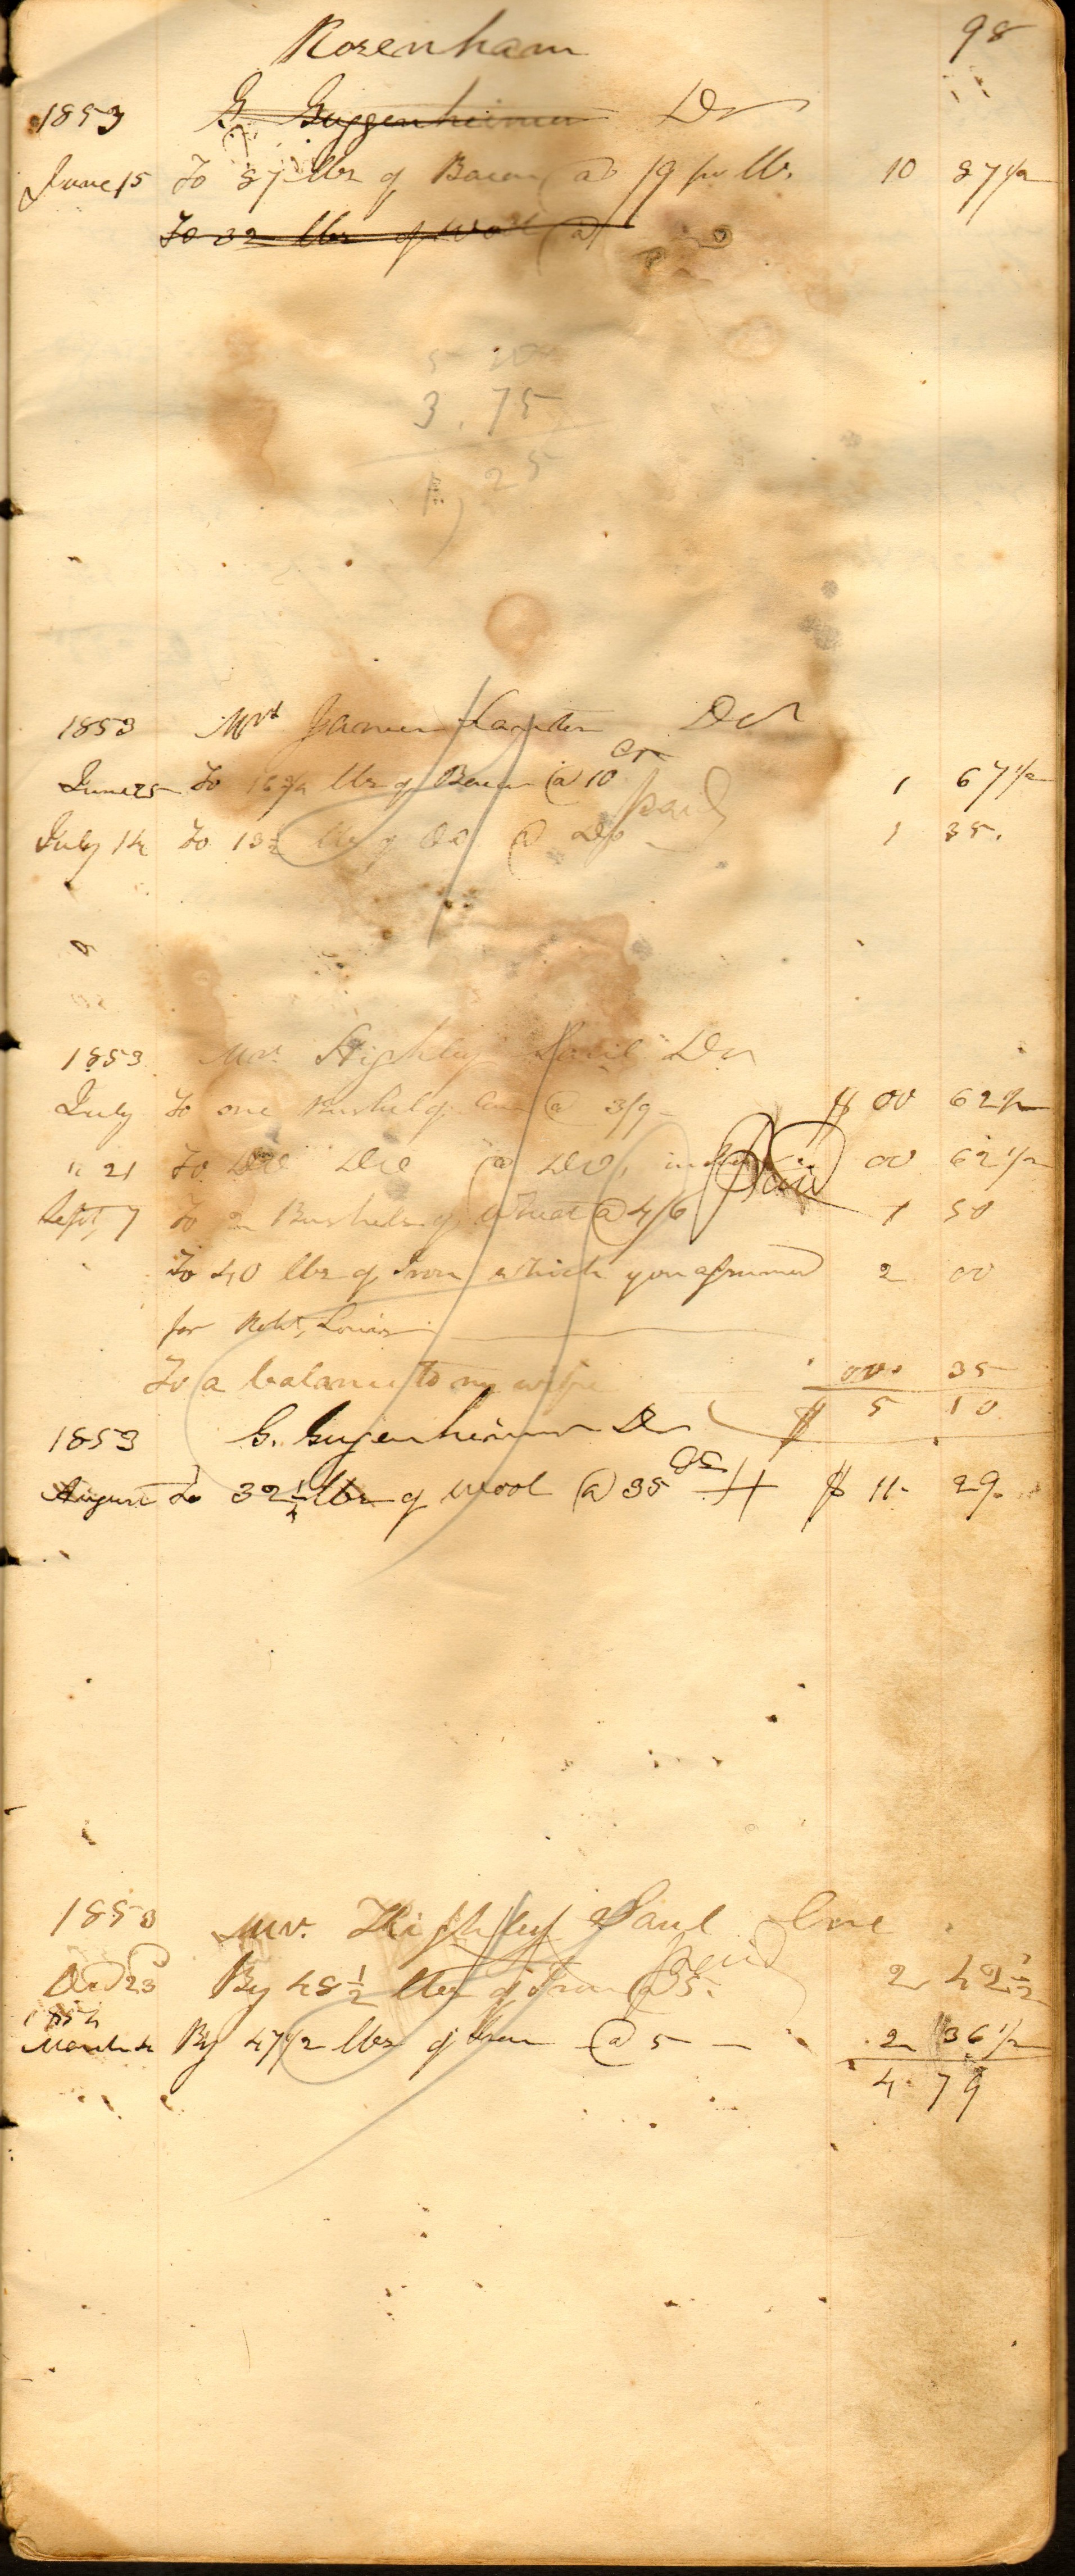 98
Rosenham
1853 G. Guggenheimer Dr
June 15 To 87 lbs of Bacon @ /9 per lb. 10 87 1/2
To 32 lbs of Wool @
3.75
25
1853 Mrs James Dr
June 25 To 16 3/4 lbs of Bacon @ 10 cts 1 67 1/2
paid
July 14 To 13 1/2 lbs of Do @ Do 1 35.
1853 Mr. Highley Paul Dr
July To one Bushel of Corn @ 3/9 $ 00 62 1/2
" 21 To Do Do @ Do, 00 62 1/2
Paid
Sept, 7 To 2 Bushels of Wheat @ 4/6 1 50
To 40 lbs of Iron which you assumed 2 00
for Robt, Lewis
To a balance to my wife 00. 35
$ 5 10
1853 G. Gugenheimer Dr
August To 32 1/4 lbs of Wool @ 35 cts $ 11. 29.
1853 Mr. Highley Paul Cr
paid
Oct 23 By 48 1/2 lbs of Iron @ 5. 2 42 1/2
1854
March 4 By 47 1/2 lbs of Iron @ 5 2 36 1/2
4.79